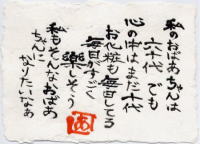 私のおばあちゃんは
六十代 でも
心の中はまだ十代
お化粧も毎日してる
毎日がすごく
楽しそう
私もそんなおばあ
ちゃんに
なりたいなぁ